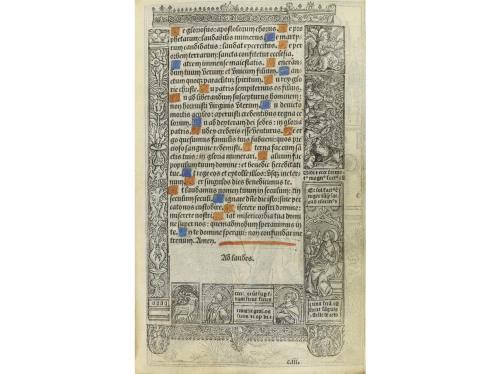 Te gloriosus: apostolorum chorus. Te pro
phetarum: laudabilis numerus. Te marty
rum candidatus: laudat exercitus. Te per
orbem terrarum: sancta confitetur ecclesia.
Patrem immense maiestatis. Veneran
dum tuum verum: et vnicum filium. San
ctum quoqz paraclitum spiritum. Tu rex glo
rie christe. Tu patris sempiternus es filius.
Tu ad liberandum suscepturus hominem:
non horruisti virginis vterum. Tu deuicto
mortis aculeo: aperuisti credentibus regna ce
lorum. Tu ad dexteram dei sedes: in gloria
patris. Iudex crederis esse venturus. Te er
go quesumus famulis tuis subueni: quos pre
cioso sanguine redemisti. Eterna fac cum sā
ctis tuis: in gloria numerari. Saluum fac
populum tuum domine: et benedic hereditati
tue. Et rege eos et extolle illos: vsqz in eter
num. Per singulos dies benedicimus te.
Et laudamus nomen tuum in seculum: et in
seculum seculi. Dignare die isto: sine pec
cato nos custodire. Miserere nostri domine:
miserere nostri. Fiat misericordia tua domi
ne super nos: quemadmodum sperauimus in
te. In te domine speraui: non confundar in e
ternum. Amen.
Ad laudes.
c.iii.